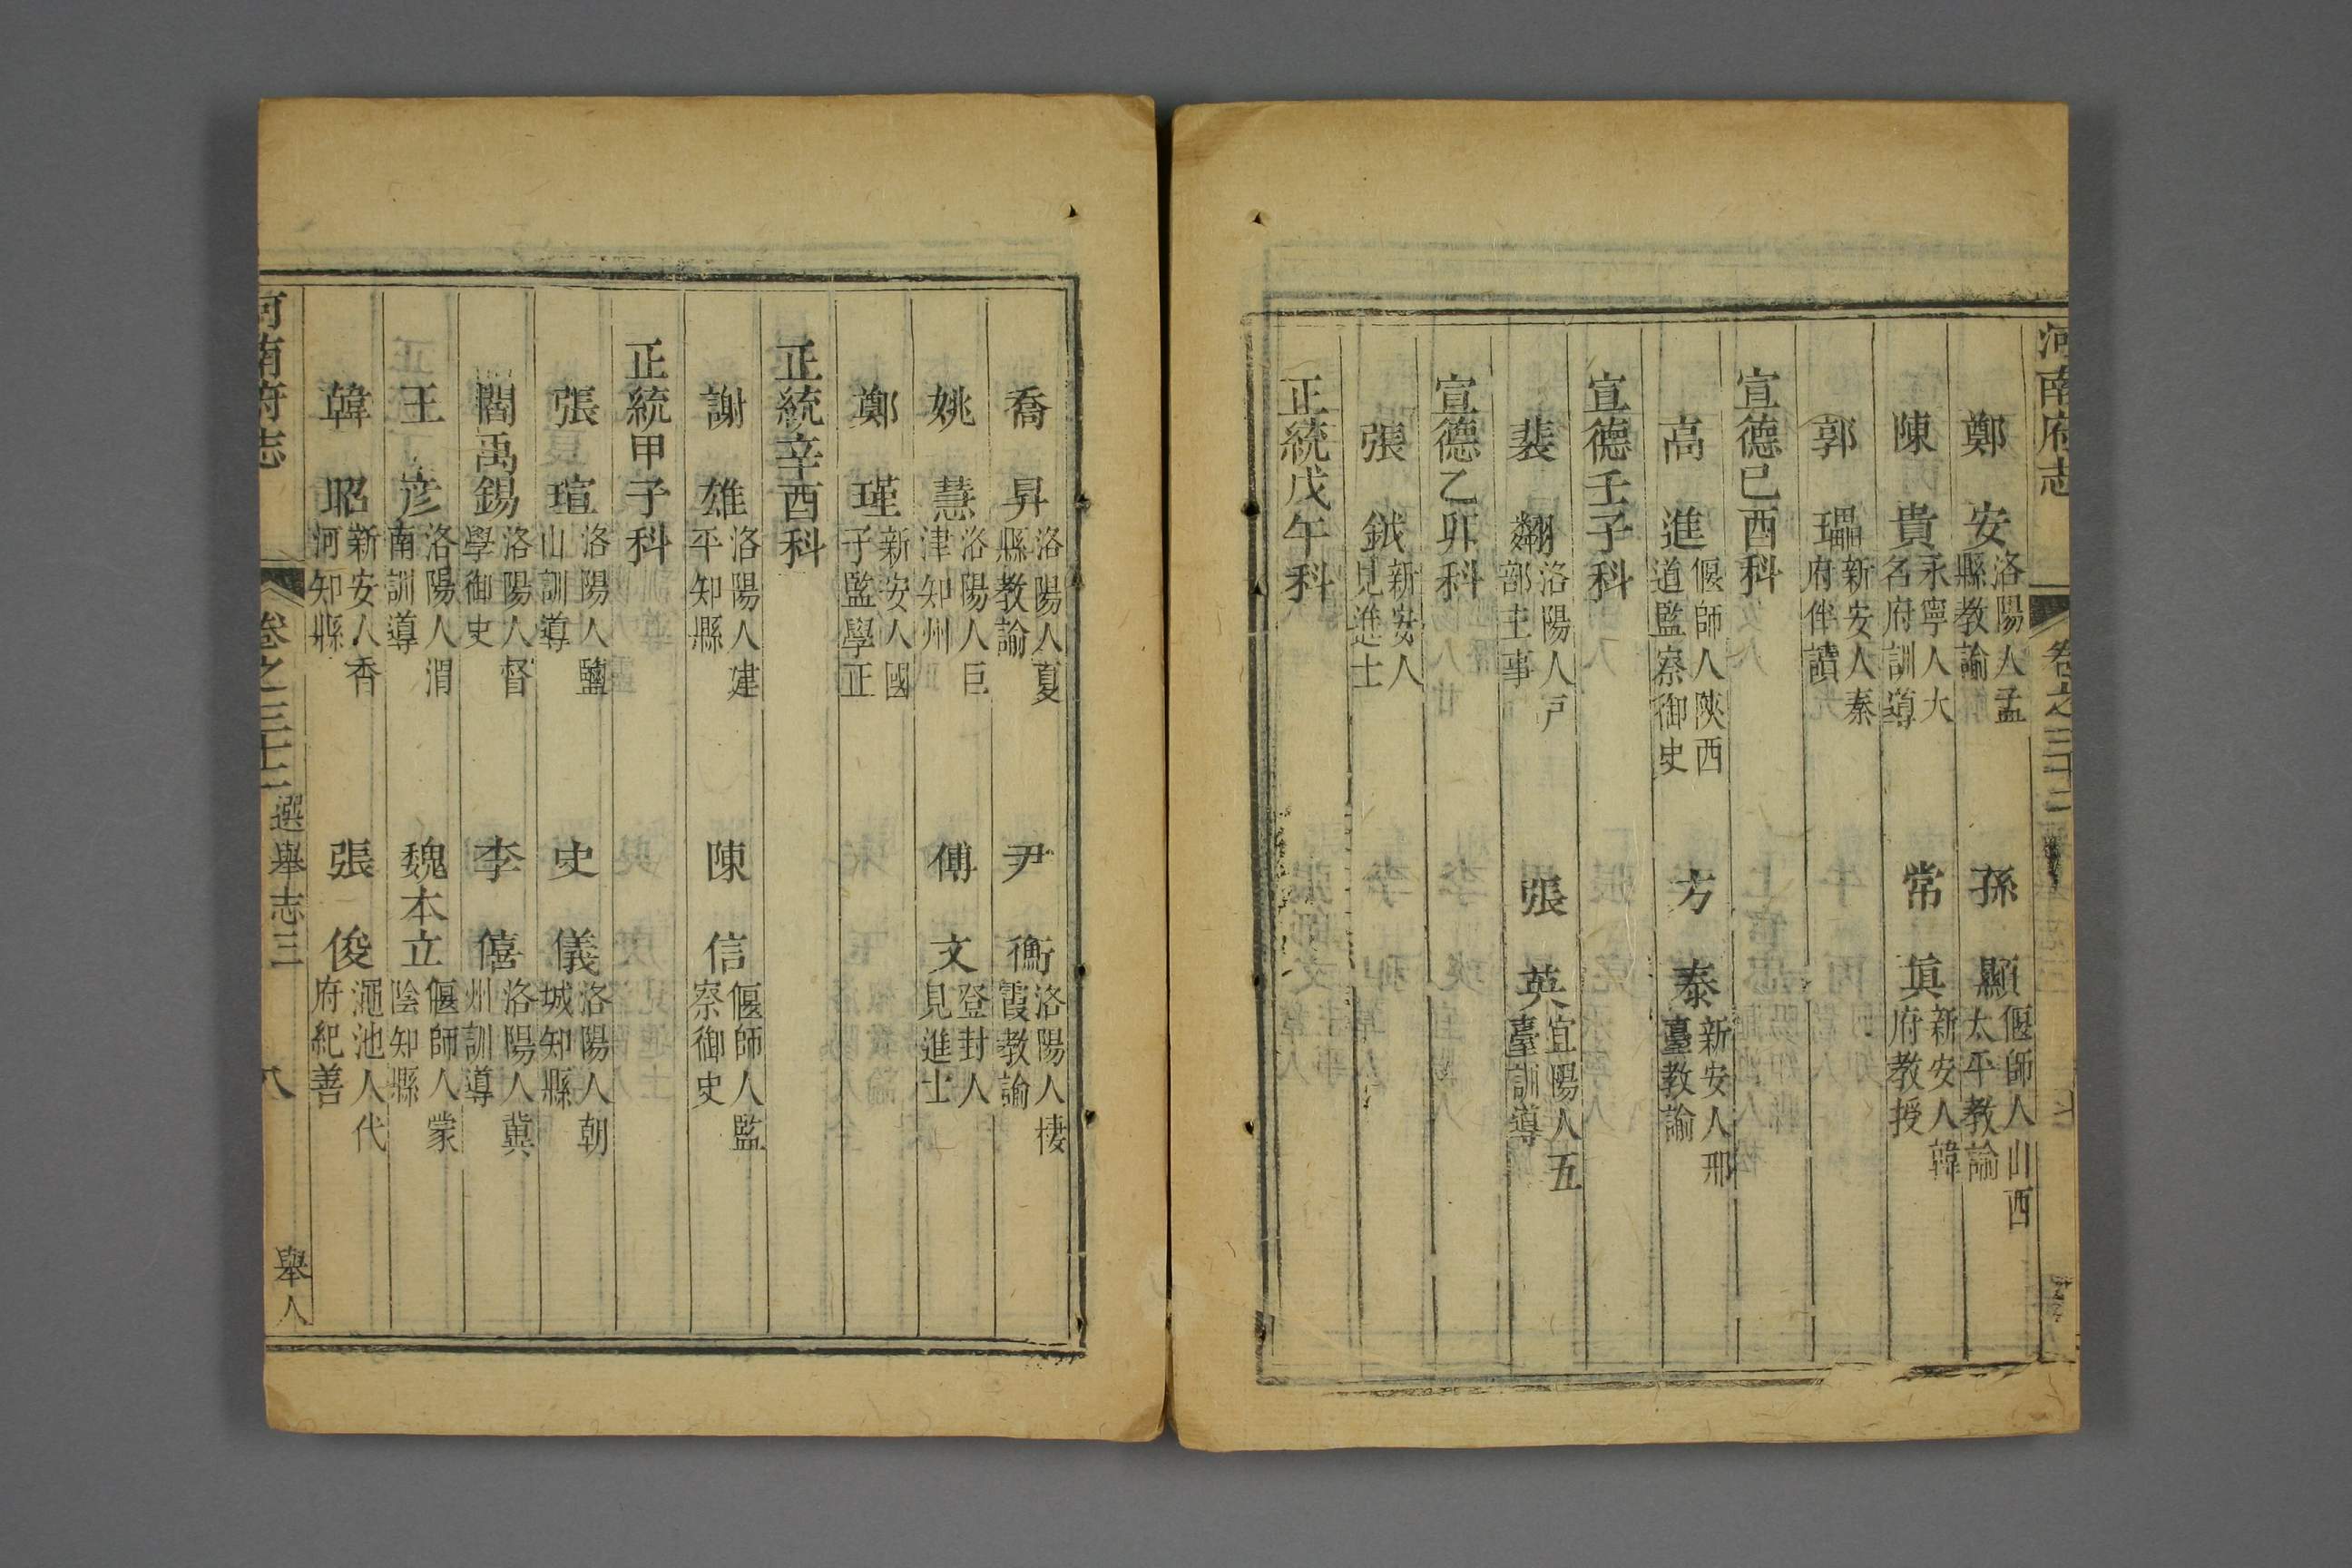 河南府志 卷之三十二
鄭 安 洛陽人孟縣教諭 孫 顯 偃師人山西太平教諭
陳 貴 永寧人大名府訓導 常 眞 新安人韓府教授
郭 瑥 新安人秦府伴讀
宣德己酉科
高 進 偃師人陝西道監察御史 方 泰 新安人邢臺教諭
宣德壬子科
裴 翷 洛陽人戸部主事 張 英 宜陽人五臺訓導
宣德乙卯科
張 鉞 新安人見進士
正統戊午科
喬 昇 洛陽人夏縣教諭 尹 衡 洛陽人棲霞教諭
姚 慧 洛陽人巨津知州 傅 文 登封人見進士
鄭 瑾 新安人國子監學正
正統辛酉科
謝 雄 洛陽人建平知縣 陳 信 偃師人監察御史
正統甲子科
張 瑄 洛陽人鹽山訓導 史 儀 洛陽人朝城知縣
閻禹錫 洛陽人督學御史 李 僖 洛陽人冀州訓導
王 彦 洛陽人渭南訓導 魏本立 偃師人蒙陰知縣
韓 昭 新安人香河知縣 張 俊 澠池人代府紀善
河南府志 卷之三十二 選舉志三 八 舉人